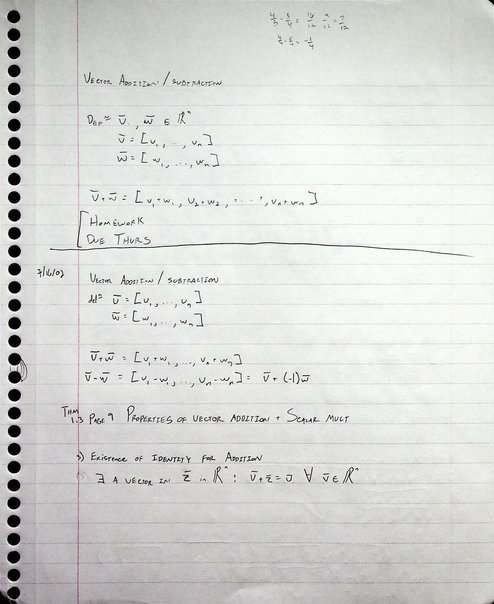 4/3 - 3/4 = 16/12 - 9/12 = 7/12
VECTOR ADDITION / SUBTRACTION
DEF= v̅, w̅ ∈ ℝⁿ
v̅ = [v₁, ..., vₙ]
w̅ = [w₁, ..., wₙ]
v̅+w̅ = [v₁+w₁, v₂+w₂, ..., vₙ+wₙ]
HOMEWORK
DUE THURS
7/16/02 VECTOR ADDITION / SUBTRACTION
def= v̅ = [v₁, ..., vₙ]
w̅ = [w₁, ..., wₙ]
v̅+w̅ = [v₁+w₁, ..., vₙ+wₙ]
v̅-w̅ = [v₁-w₁, ..., vₙ-wₙ] = v̅+(-1)w̅
THM 1.3 PAGE 9 PROPERTIES OF VECTOR ADDITION + SCALAR MULT
3) EXISTENCE OF IDENTITY FOR ADDITION
∃ A VECTOR IN z̅ in ℝⁿ : v̅+z̅=v̅ ∀ v̅∈ℝⁿ